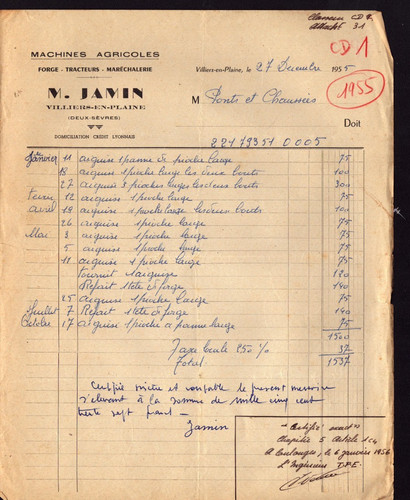 Classeur CD 1
31
CD1
1955
MACHINES AGRICOLES
FORGE - TRACTEURS - MARÉCHALERIE
M. JAMIN
VILLIERS-EN-PLAINE
(DEUX-SÈVRES)
DOMICILIATION CRÉDIT LYONNAIS
Villiers-en-Plaine, le 27 Décembre 1955
M Ponts et Chaussées
Doit
22179351 0005
Janvier 11 aiguisé 1 panne de pioche large 75
18 aiguisé 1 pioche large les deux bouts 100
27 aiguisé 3 pioches larges les deux bouts 300
12 aiguisé 1 pioche large 75
Avril 18 aiguisé 1 pioche large les deux bouts 100
26 aiguisé 1 pioche large 75
Mai 3 aiguisé 1 pioche large 75
5 aiguisé 1 pioche large 75
11 aiguisé 1 pioche large 75
fournit 1
Refait 1 tête à forge 140
25 aiguisé 1 pioche large 75
Juillet 7 Refait 1 tête à forge 140
Octobre 17 aiguisé 1 pioche à panne large 75
1500
Taxe locale 250 % 37
Total 1537
Certifié sincère et conforme le présent mémoire
s'élevant à la somme de mille cinq cent
trente sept francs
Jamin
Certifié exact
Chapitre 5 Article 1
A Coulonges, le 6 janvier 1956
L'Ingénieur T.P.E.